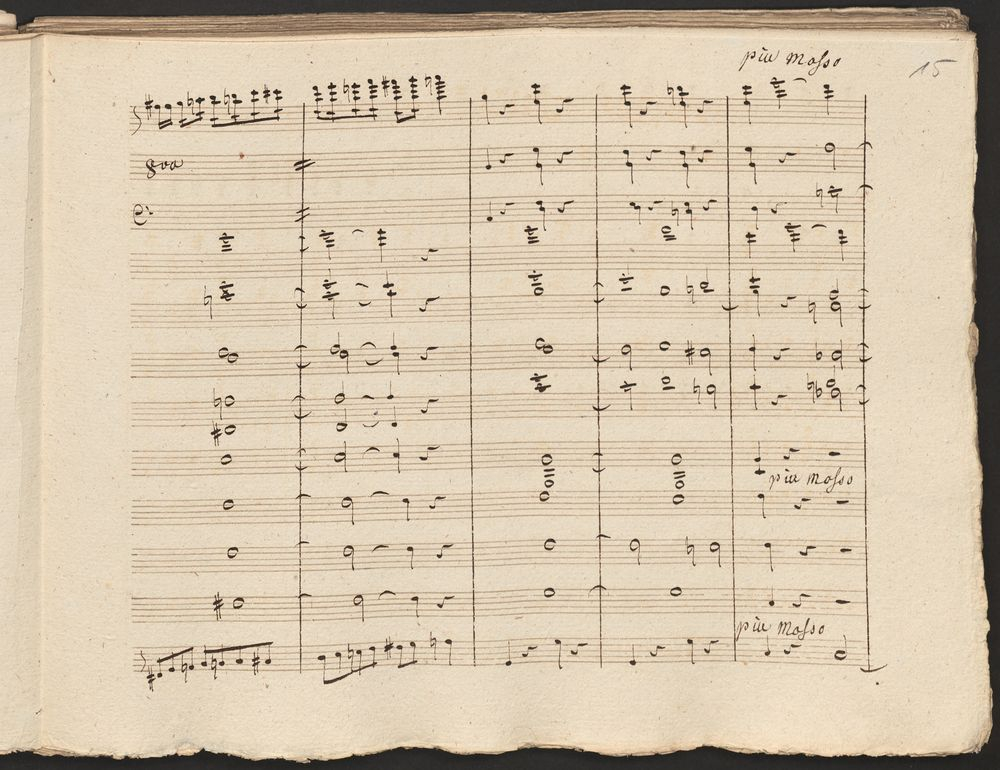 più mosso
15
8va
più mosso
più mosso